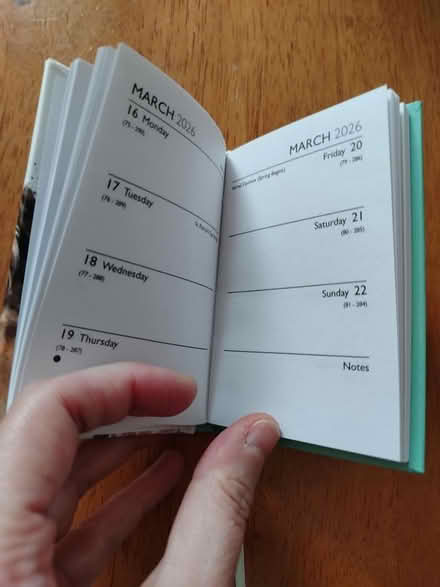 MARCH 2026
16 Monday
(75 - 290)
17 Tuesday
(76 - 289)
St. Patrick's Day
18 Wednesday
(77 - 288)
19 Thursday
(78 - 287)
MARCH 2026
Friday 20
(79 - 286)
Vernal Equinox (Spring Begins)
Saturday 21
(80 - 285)
Sunday 22
(81 - 284)
Notes